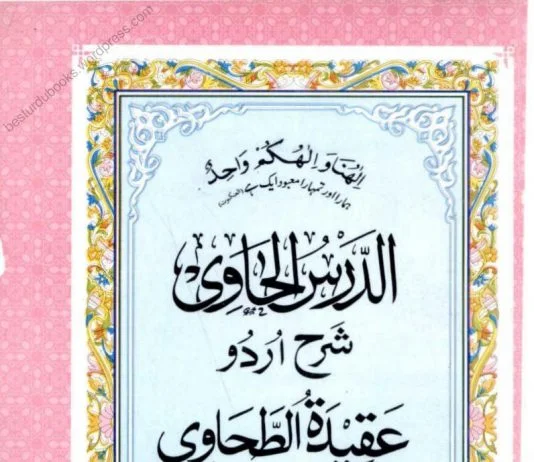 besturdubooks.wordpress.com
اِلٰهُنَا وَ اِلٰهُكُمْ وَاحِدٌ
ہمارا اور تمہارا معبود ایک ہے (العنکبوت)
الدَّرسُ الحَاوِی
شرح اُردو
عَقِیْدَةُ الطَّحَاوِی